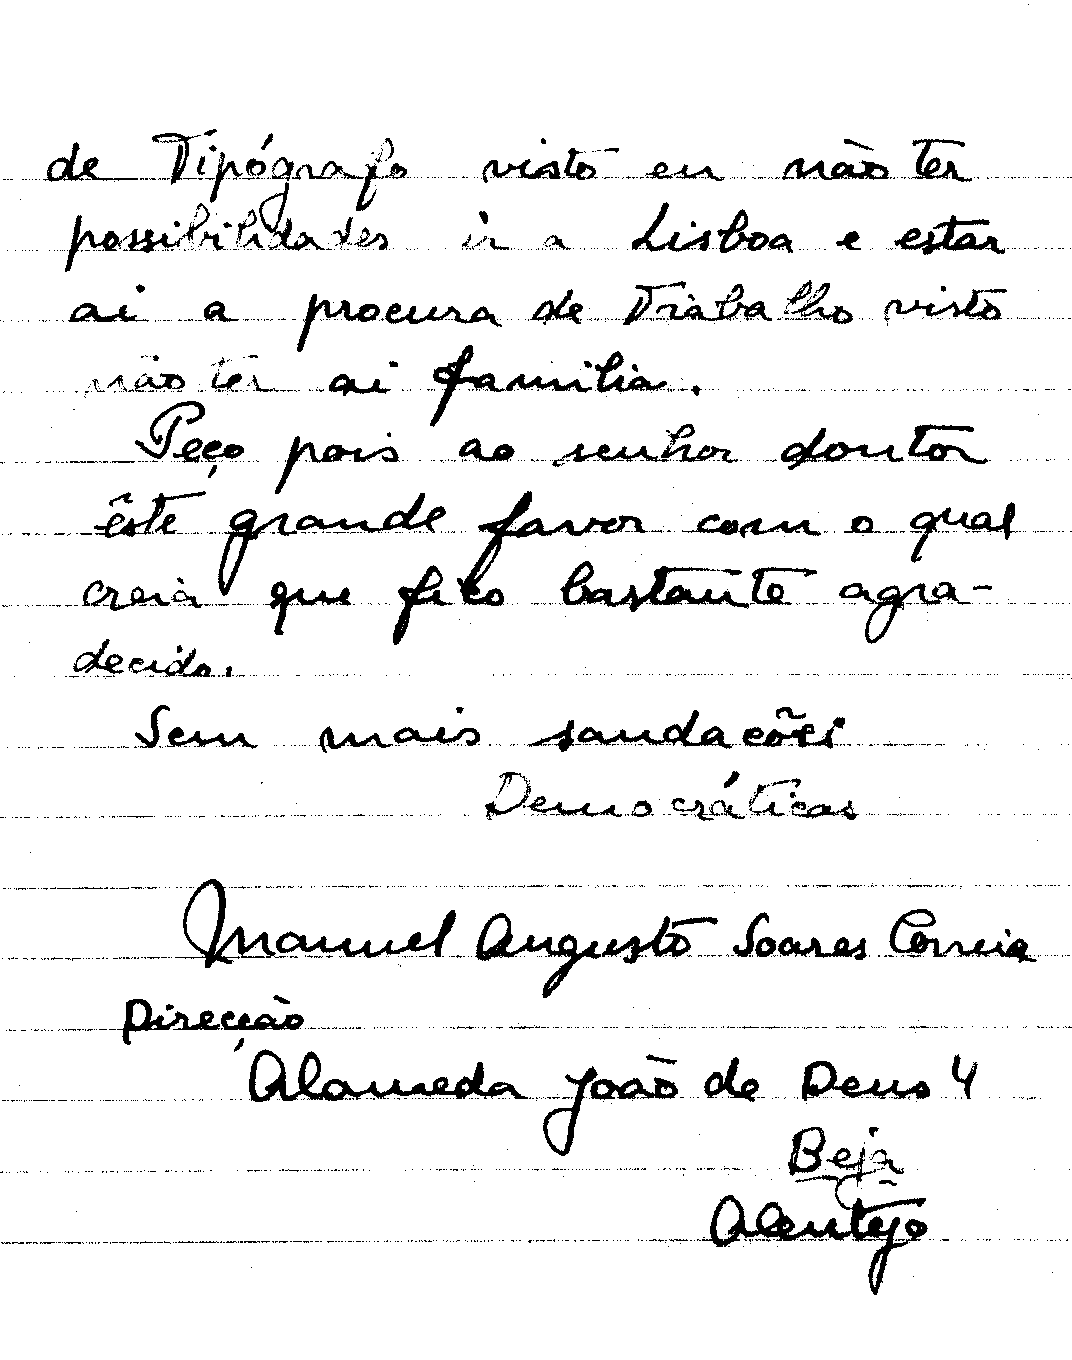 de Tipógrafo visto eu não ter
possibilidades ir a Lisboa e estar
ai a procura de Trabalho visto
não ter ai familia.
Peço pois ao senhor doutor
êste grande favor com o qual
creia que fico bastante agra-
decido.
Sem mais saudações
Democráticas
Manuel Augusto Soares Correia
Direcção
Alameda João de Deus 4
Beja
Alentejo